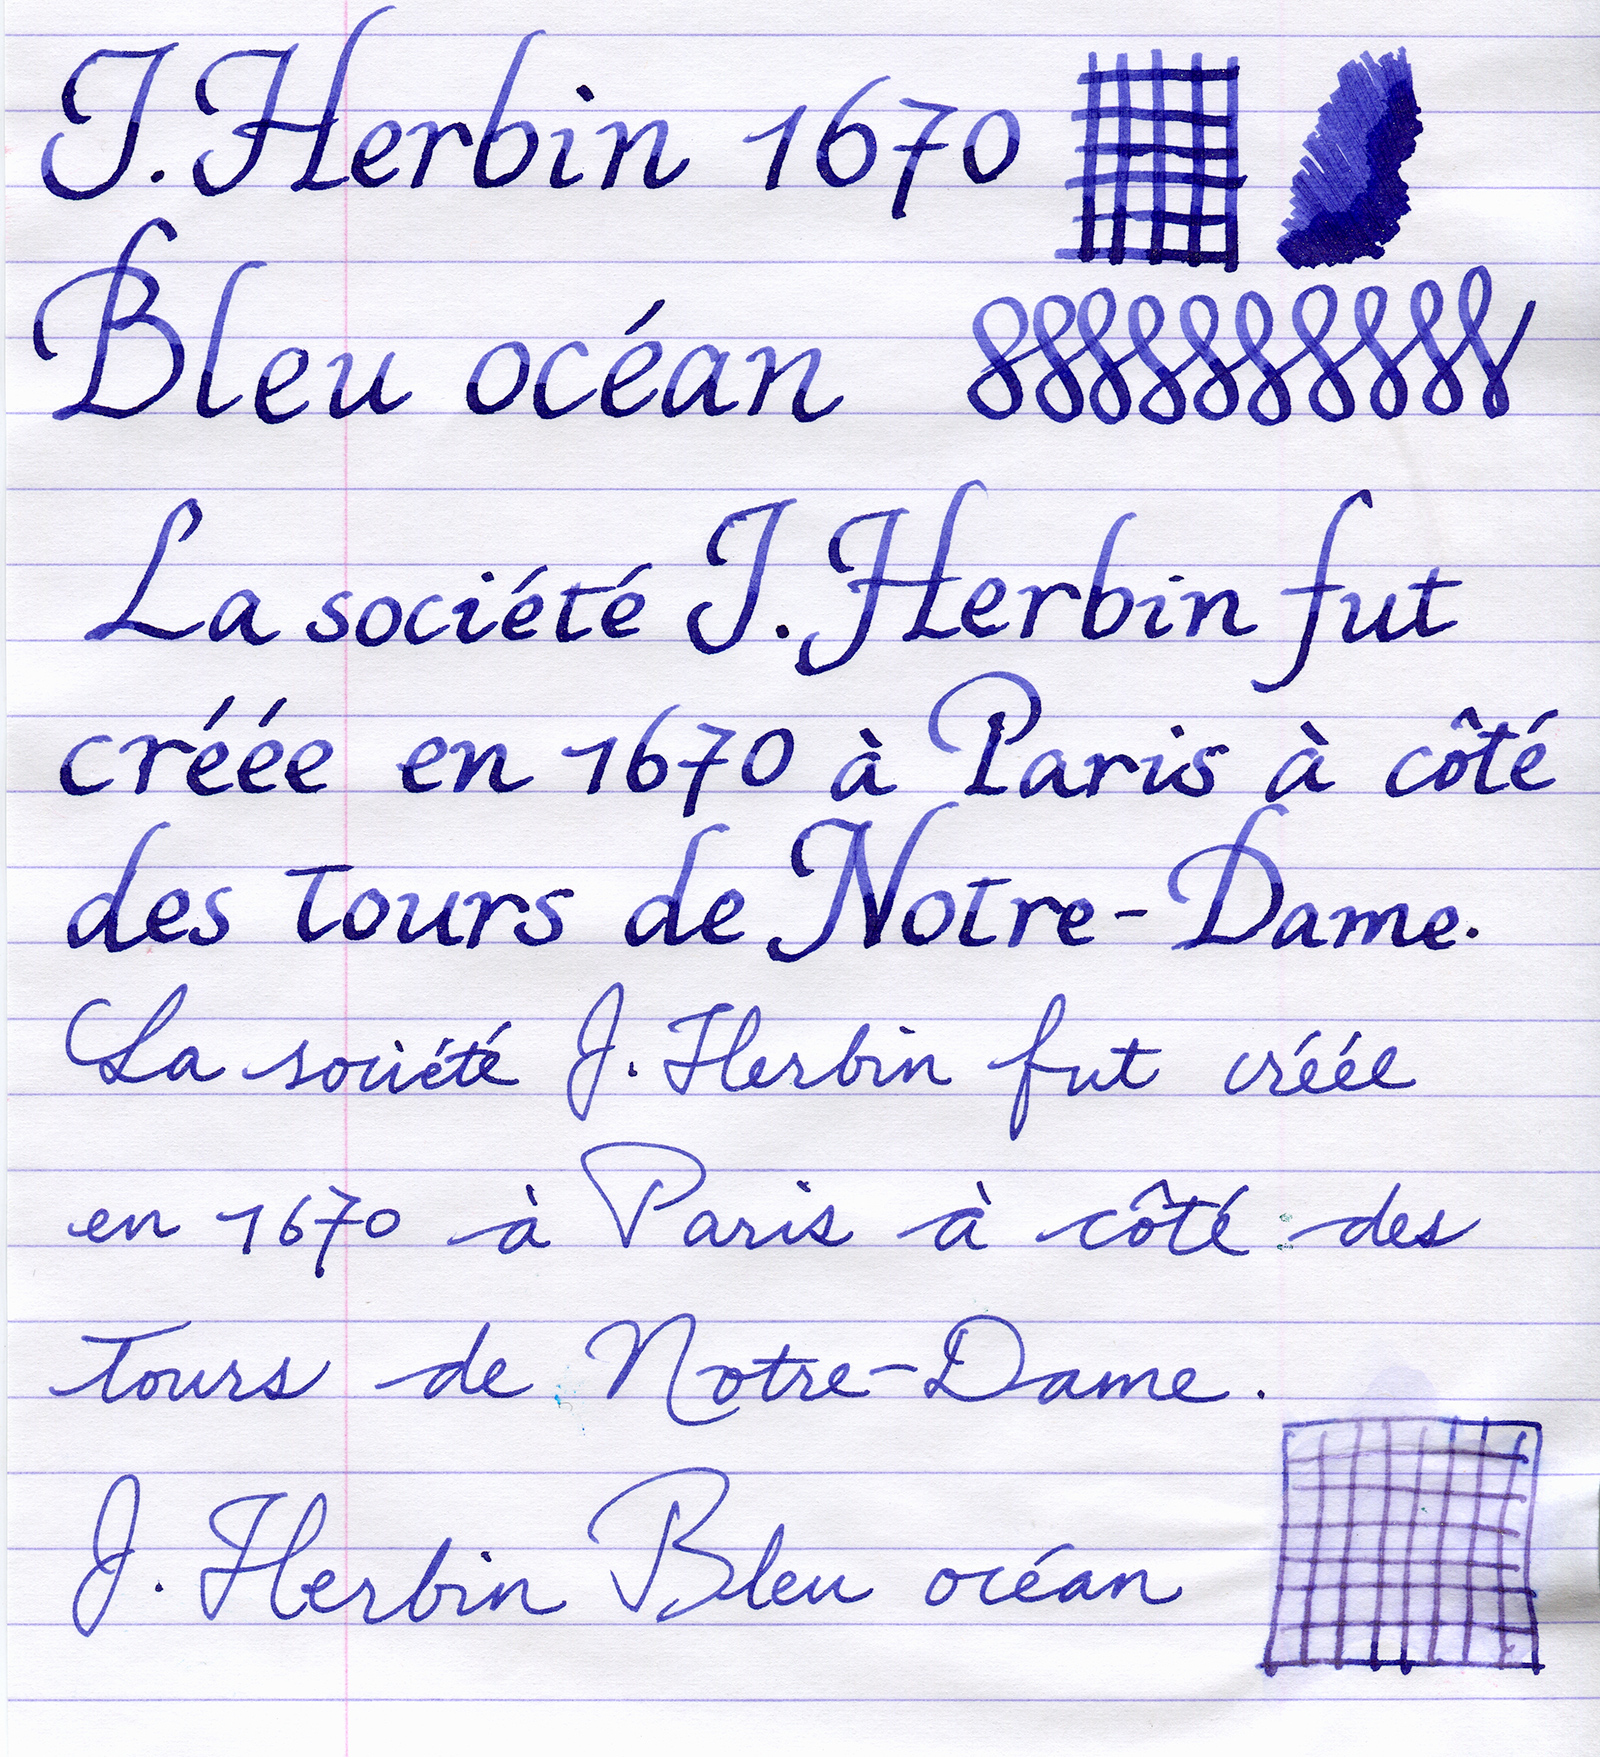 J. Herbin 1670
Bleu océan
La société J. Herbin fut
créée en 1670 à Paris à côté
des tours de Notre-Dame.
La société J. Herbin fut créée
en 1670 à Paris à côté des
tours de Notre-Dame.
J. Herbin Bleu océan